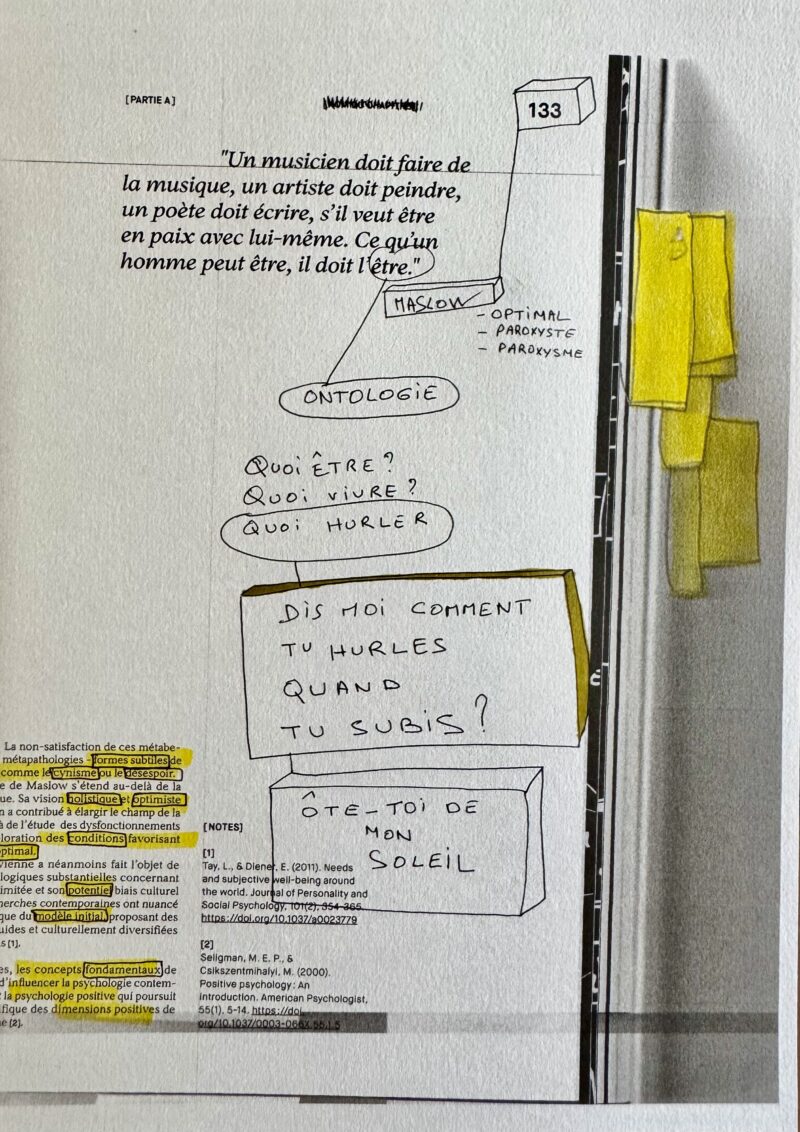 [PARTIE A]
133
"Un musicien doit faire de
la musique, un artiste doit peindre,
un poète doit écrire, s'il veut être
en paix avec lui-même. Ce qu'un
homme peut être, il doit l'être."
MASLOW
- OPTIMAL
- PAROXYSTE
- PAROXYSME
ONTOLOGIE
QUOI ÊTRE ?
QUOI VIVRE ?
QUOI HURLER
DIS MOI COMMENT
TU HURLES
QUAND
TU SUBIS ?
ÔTE-TOI DE
MON
SOLEIL
La non-satisfaction de ces métabe-
métapathologies - formes subtiles de
comme le cynisme ou le désespoir.
e de Maslow s'étend au-delà de la
que. Sa vision holistique et optimiste
n a contribué à élargir le champ de la
à de l'étude des dysfonctionnements
loration des conditions favorisant
optimal.
vienne a néanmoins fait l'objet de
logiques substantielles concernant
imitée et son potentiel biais culturel
herches contemporaines ont nuancé
que du modèle initial, proposant des
uides et culturellement diversifiées
s [1].
es, les concepts fondamentaux de
d'influencer la psychologie contem-
t la psychologie positive qui poursuit
ifique des dimensions positives de
e [2].
[NOTES]
[1]
Tay, L., & Diener, E. (2011). Needs
and subjective well-being around
the world. Journal of Personality and
Social Psychology, 101(2), 354-365.
https://doi.org/10.1037/a0023779
[2]
Seligman, M. E. P., &
Csikszentmihalyi, M. (2000).
Positive psychology : An
introduction. American Psychologist,
55(1), 5-14. https://doi.
org/10.1037/0003-066X.55.1.5